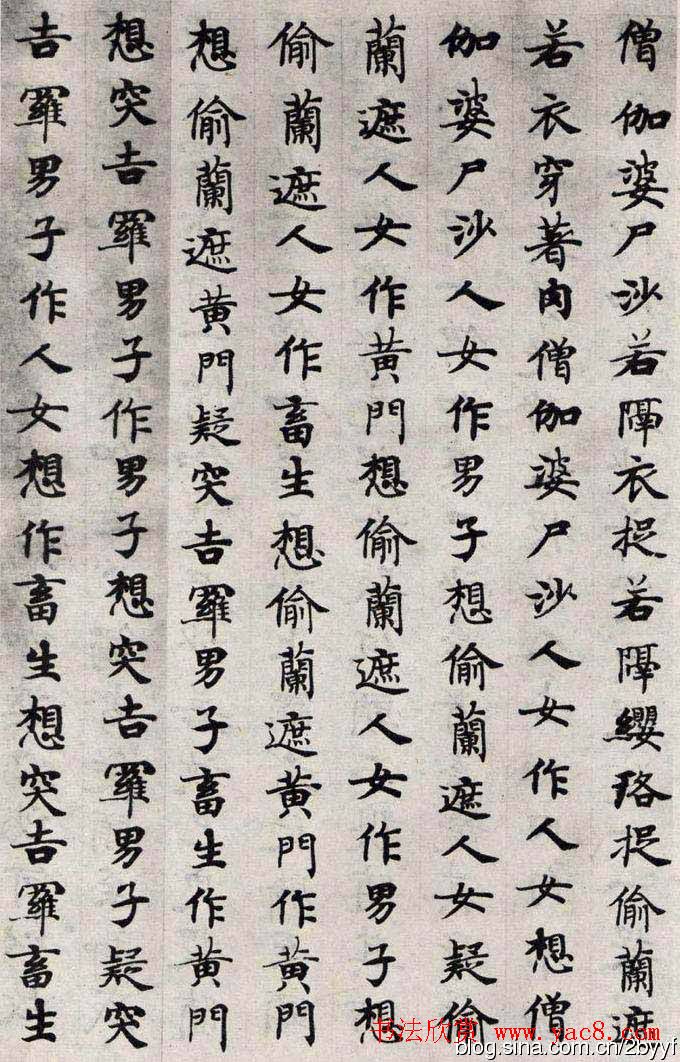 僧伽婆尸沙若隔衣捉若隔纓珞捉偷蘭遮
若衣穿著肉僧伽婆尸沙人女作人女想僧
伽婆尸沙人女作男子想偷蘭遮人女疑偷
蘭遮人女作黃門想偷蘭遮人女作男子想
偷蘭遮人女作畜生想偷蘭遮黃門作黃門
想偷蘭遮黃門疑突吉羅男子畜生作黃門
想突吉羅男子作男子想突吉羅男子疑突
吉羅男子作人女想作畜生想突吉羅畜生
书法欣赏 www.yac8.com
blog.sina.com.cn/2byyf